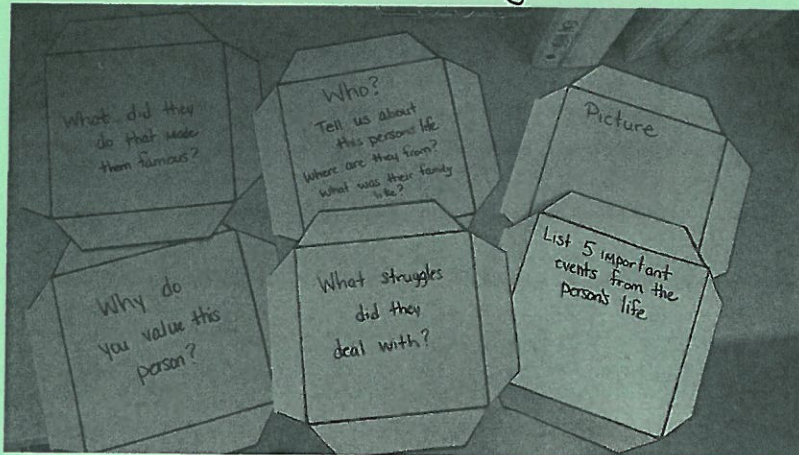 What did they
do that made
them famous?
Who?
Tell us about
this persons life
Where are they from?
What was their family
like?
Picture
Why do
you value this
person?
What struggles
did they
deal with?
List 5 important
events from the
person's life